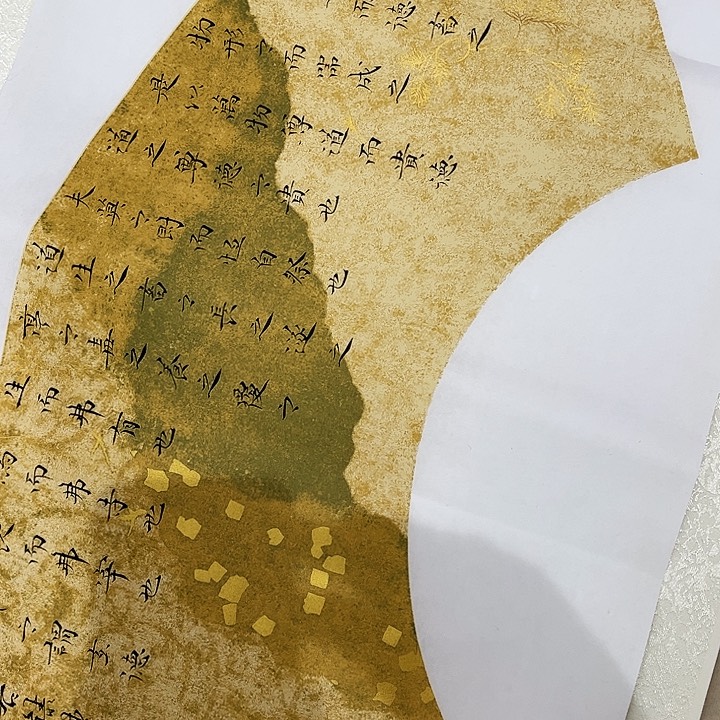 而德畜之
物形之而器成之
是以萬物尊道而貴德
道之尊德之貴也
夫莫之爵而恒自然也
道生之畜之長之遂之
亭之毒之養之覆之
生而弗有也
而弗寺也
而弗宰也
之謂玄德